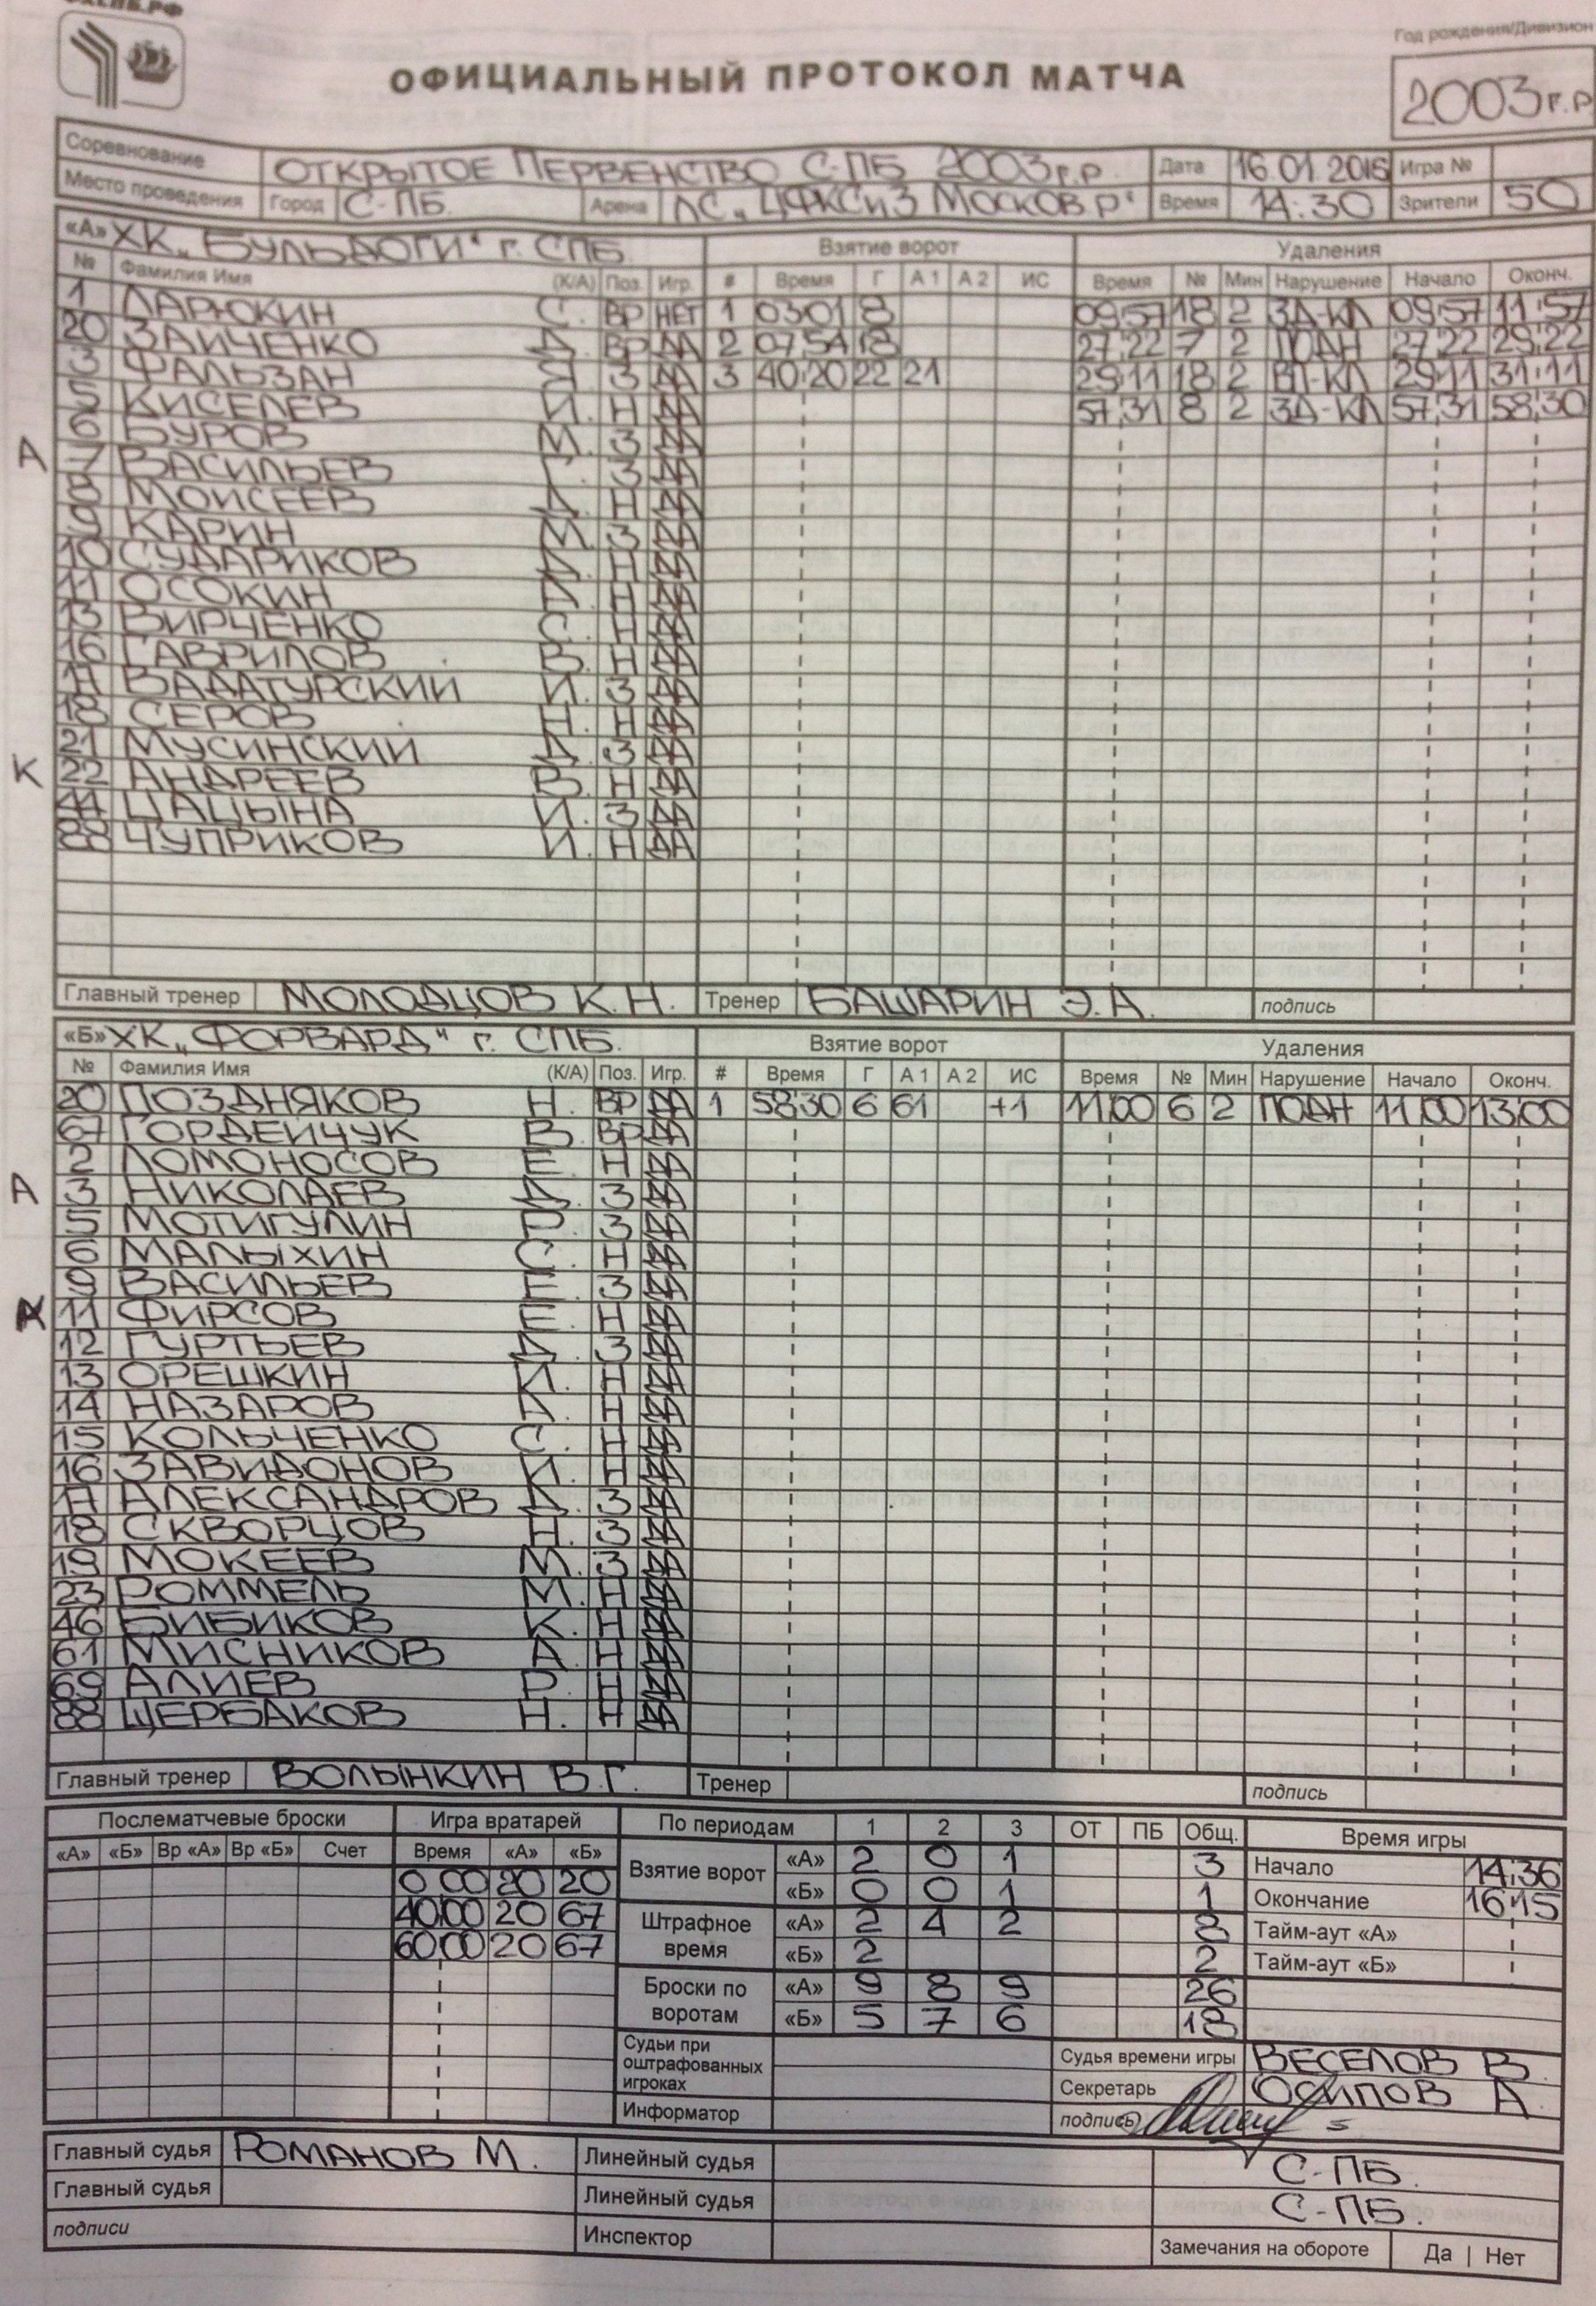 ОФИЦИАЛЬНЫЙ ПРОТОКОЛ МАТЧА
Год рождения/Дивизион
2003 г.р
Соревнование ОТКРЫТОЕ ПЕРВЕНСТВО С-ПБ 2003г.р Дата 16.01.2016 Игра №
Место проведения Город С-ПБ. Арена ЛС „ЦФКСиЗ МОСКОВ Р" Время 14:30 Зрители 50
«А» ХК „БУЛЬДОГИ" г. СПБ. Взятие ворот Удаления
№ Фамилия Имя (К/А) Поз. Игр. # Время Г А 1 А 2 ИС Время № Мин Нарушение Начало Оконч.
1 ЛАРЮКИН С. ВР НЕТ 1 03:01 8 09:57 18 2 ЗД-КЛ 09:57 11:57
20 ЗАИЧЕНКО Д. ВР ДА 2 07:54 18 27:22 7 2 ПОДН 27:22 29:22
3 ФАЛЬЗАН Я. З ДА 3 40:20 22 21 29:11 18 2 ВП-КЛ 29:11 31:11
5 КИСЕЛЕВ И. Н ДА 57:31 8 2 ЗД-КЛ 57:31 58:30
6 БУРОВ М. З ДА
А 7 ВАСИЛЬЕВ Г. З ДА
8 МОИСЕЕВ Д. Н ДА
9 КАРИН М. З ДА
10 СУДАРИКОВ Д. Н ДА
11 ОСОКИН Н ДА
13 ВИРЧЕНКО С. Н ДА
16 ГАВРИЛОВ В. Н ДА
17 ВАДАТУРСКИЙ И. З ДА
18 СЕРОВ Н. Н ДА
21 МУСИНСКИЙ Д. З ДА
К 22 АНДРЕЕВ В. Н ДА
44 ЦАЦЫНА И. З ДА
88 ЧУПРИКОВ И. Н ДА
Главный тренер МОЛОДЦОВ К.Н. Тренер БАШАРИН Э.А. подпись
«Б» ХК „ФОРВАРД" г. СПБ. Взятие ворот Удаления
№ Фамилия Имя (К/А) Поз. Игр. # Время Г А 1 А 2 ИС Время № Мин Нарушение Начало Оконч.
20 ПОЗДНЯКОВ Н. ВР ДА 1 58:30 6 61 +1 11:00 6 2 ПОДН 11:00 13:00
67 ГОРДЕЙЧУК В. ВР ДА
2 ЛОМОНОСОВ Е. Н ДА
А 3 НИКОЛАЕВ Д. З ДА
5 МОТИГУЛИН Р. З ДА
6 МАЛЫХИН С. Н ДА
9 ВАСИЛЬЕВ Е. З ДА
11 ФИРСОВ Е. Н ДА
12 ГУРТЬЕВ Д. З ДА
13 ОРЕШКИН И. Н ДА
14 НАЗАРОВ Н ДА
15 КОЛЬЧЕНКО С. Н ДА
16 ЗАВИДОНОВ И. Н ДА
17 АЛЕКСАНДРОВ Д. З ДА
18 СКВОРЦОВ Н. З ДА
19 МОКЕЕВ М. З ДА
23 РОММЕЛЬ М. Н ДА
46 БИБИКОВ К. Н ДА
61 МИСНИКОВ А. Н ДА
69 АЛИЕВ Р. Н ДА
88 ЩЕРБАКОВ Н. Н ДА
Главный тренер ВОЛЫНКИН В.Г. Тренер подпись
Послематчевые броски Игра вратарей По периодам 1 2 3 ОТ ПБ Общ. Время игры
«А» «Б» Вр «А» Вр «Б» Счет Время «А» «Б»
0:00 20 20
40:00 20 67
60:00 20 67
Взятие ворот «А» 2 0 1 3 Начало 14:36
«Б» 0 0 1 1 Окончание 16:15
Штрафное время «А» 2 4 2 8 Тайм-аут «А»
«Б» 2 2 Тайм-аут «Б»
Броски по воротам «А» 9 8 9 26
«Б» 5 7 6 18
Судьи при оштрафованных игроках Судья времени игры ВЕСЕЛОВ В.
Секретарь ОСИПОВ А.
Информатор подпись
Главный судья РОМАНОВ М. Линейный судья С-ПБ.
Главный судья Линейный судья С-ПБ.
подписи Инспектор Замечания на обороте Да | Нет